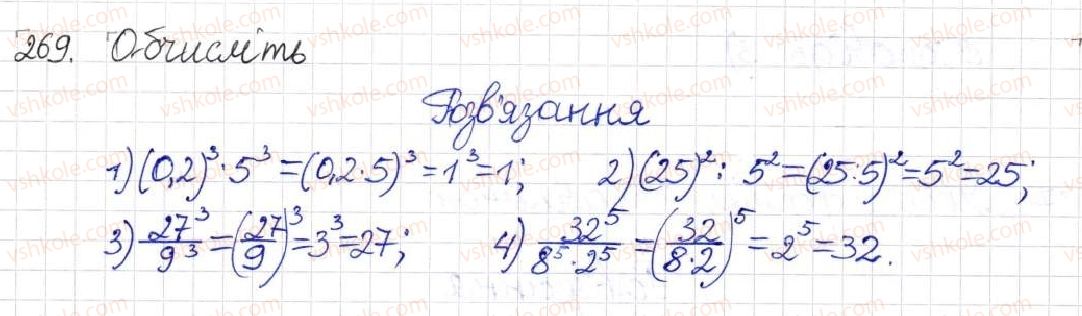 269. Обчисліть
Розв'язання
1) (0,2)³ · 5³ = (0,2 · 5)³ = 1³ = 1; 2) (25)² : 5² = (25:5)² = 5² = 25;
3) 27³/9³ = (27/9)³ = 3³ = 27; 4) 32⁵/(8⁵ · 2⁵) = (32/(8 · 2))⁵ = 2⁵ = 32.